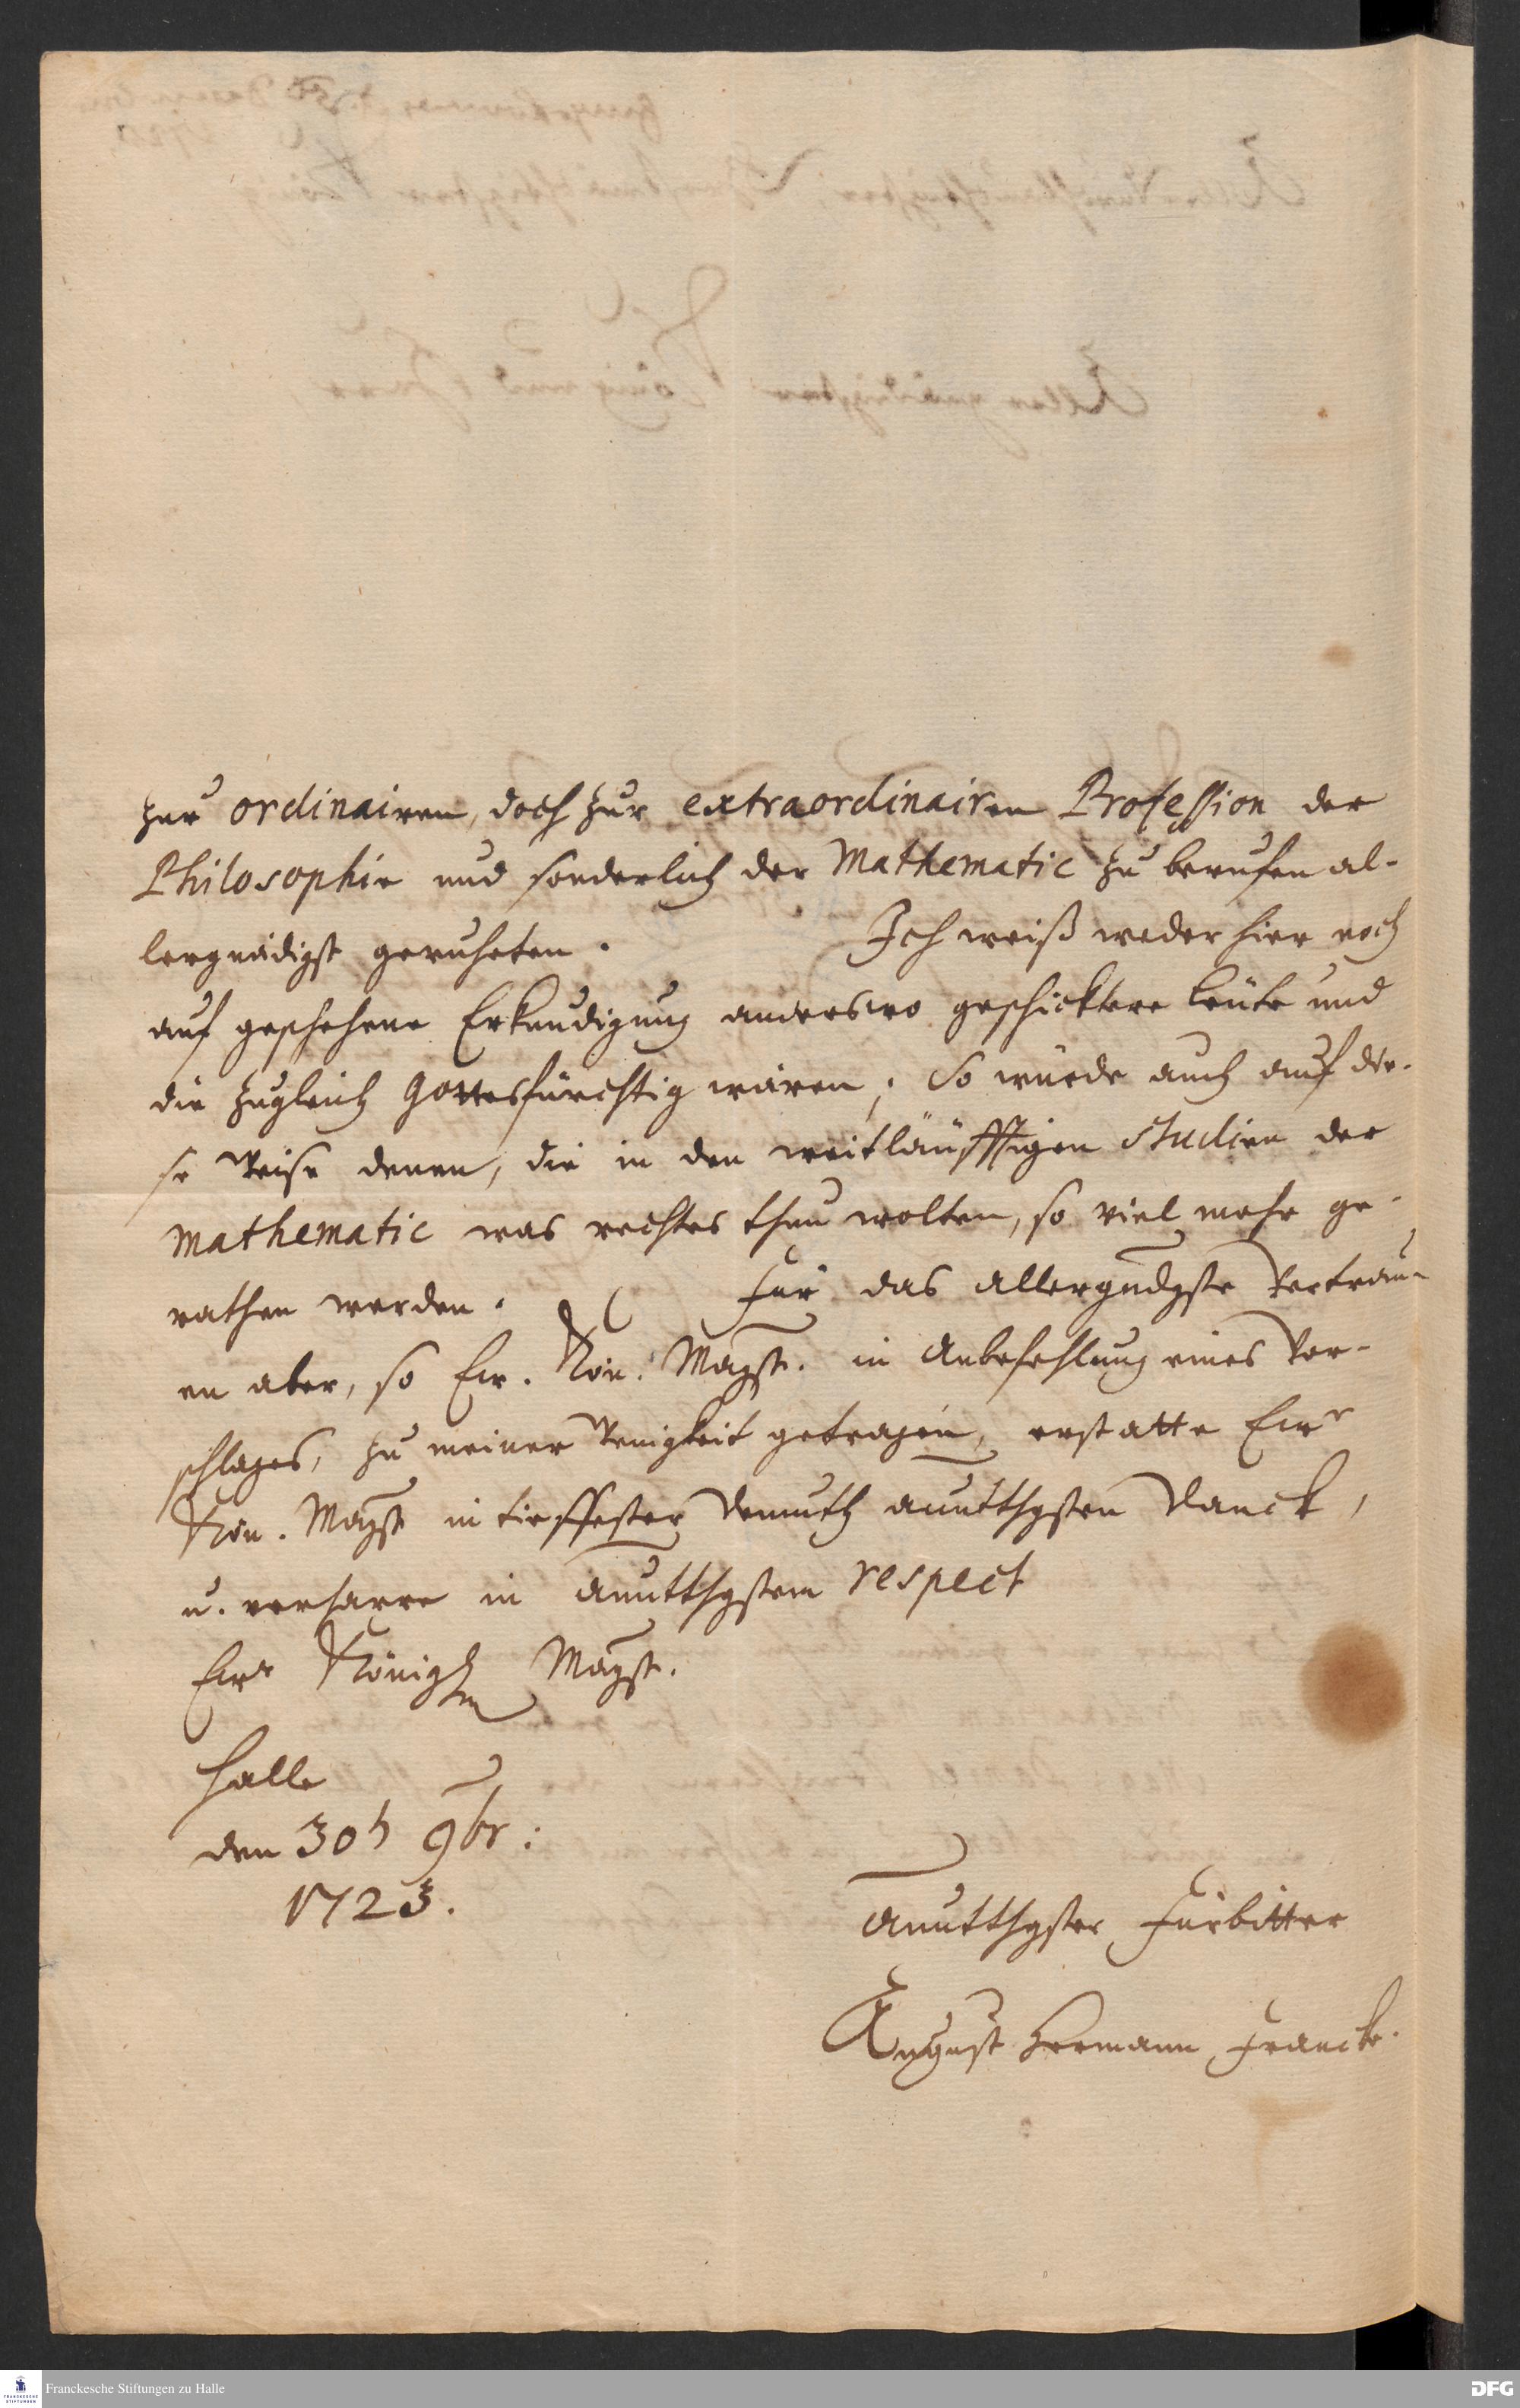 zur ordinairen, doch zur extraordinairen Profession der
Philosophie und sonderlich der Mathematic zu berufen al-
lergnädigst geruheten. Ich weiß weder hier noch
auf geschehene Erkundigung anderswo geschicktere Leute und
die zugleich Gottesfürchtig wären; So würde auch auf die-
se Weise denen, die in den weitläufftigen Studien der
Mathematic was rechtes thun wolten, so viel mehr ge-
rathen werden. Für das allergndgste Vertrau-
en aber, so Ew. Kön. Mayst. in Anbefehlung eines Vor-
schlages, zu meiner Wenigkeit getragen, erstatte Ewr
Kön. Mayst in tieffester Demuth aunutthgsten Danck,
u. verharre in aunutthgstem respect
Ewr Königln Mayst.
Halle
den 30 9br:
1723.
aunutthgster Fürbitter
August Hermann Francke.
Franckesche Stiftungen zu Halle
DFG